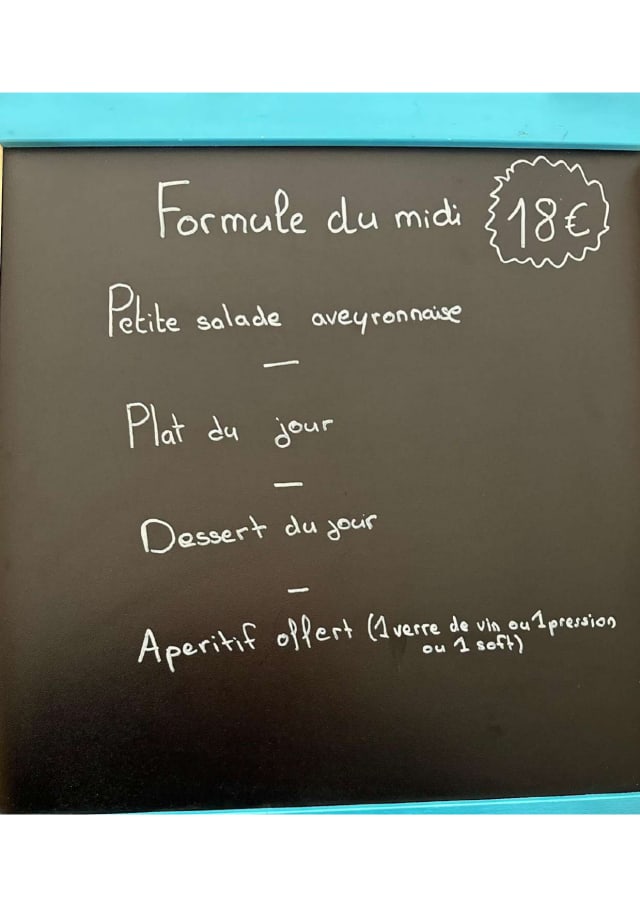 Formule du midi 18€
Petite salade aveyronnaise
—
Plat du jour
—
Dessert du jour
—
Aperitif offert (1 verre de vin ou 1 pression
ou 1 soft)